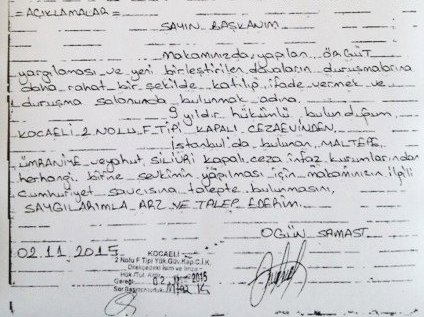 =AÇIKLAMALAR=
SAYIN BAŞKANIM
Makamınızda yapılan ÖRGÜT
yargılaması ve yeni birleştirilen davaların duruşmalarına
daha rahat bir şekilde katılıp, ifade vermek ve
duruşma salonunda bulunmak adına.
9 yıldır hükümlü bulunduğum
KOCAELİ 2 NOLU F TİPİ KAPALI CEZAEVİNDEN
İstanbul'da bulunan MALTEPE
ÜMRANİYE veyahut SİLİVRİ kapalı ceza infaz kurumlarından
herhangi birine sevkimin yapılması için makamınızın ilgili
cumhuriyet savcısına talepte bulunmasını,
SAYGILARIMLA ARZ VE TALEP EDERİM.
OGÜN SAMAST
02.11.2015
KOCAELİ
2 Nolu F Tipi Yük.Güv.Kap.C.İ.K.
Dilekçedeki İsim ve İmza
Hük./Tut.
Gereği 02 2015